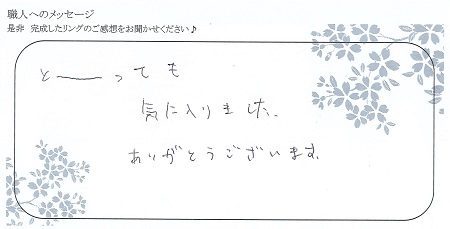 職人へのメッセージ
是非 完成したリングのご感想をお聞かせください♪
とーっても
気に入りました。
ありがとうございます。